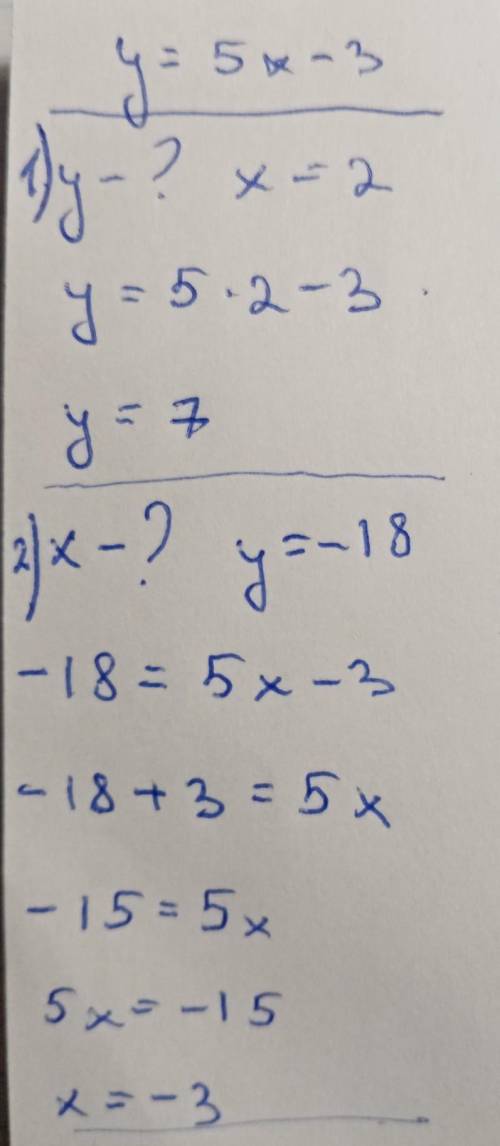 y = 5x - 3
1) y - ? x = 2
y = 5 · 2 - 3
y = 7
2) x - ? y = -18
-18 = 5x - 3
-18 + 3 = 5x
-15 = 5x
5x = -15
x = -3